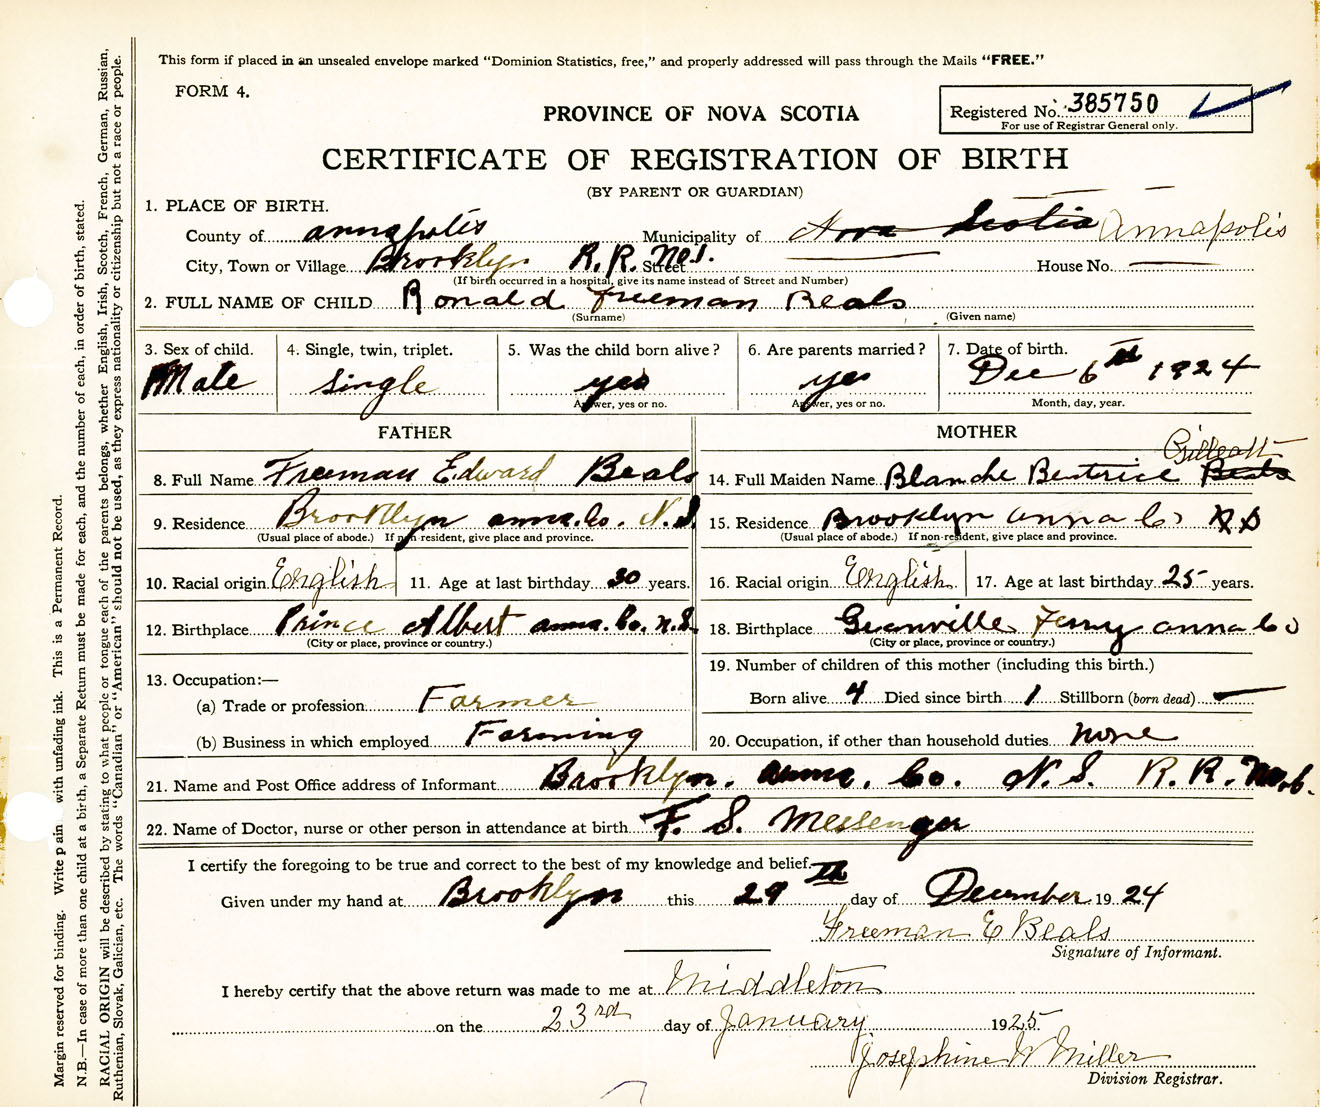 This form if placed in an unsealed envelope marked "Dominion Statistics, free," and properly addressed will pass through the Mails "FREE."
FORM 4.
PROVINCE OF NOVA SCOTIA
Registered No. 385750
For use of Registrar General only.
CERTIFICATE OF REGISTRATION OF BIRTH
(BY PARENT OR GUARDIAN)
1. PLACE OF BIRTH.
County of Annapolis Municipality of Nova Scotia Annapolis
City, Town or Village Brooklyn R.R. No. 1. Street House No.
(If birth occurred in a hospital, give its name instead of Street and Number)
2. FULL NAME OF CHILD Ronald Freeman Beals
(Surname) (Given name)
3. Sex of child. 4. Single, twin, triplet. 5. Was the child born alive? 6. Are parents married? 7. Date of birth.
Male Single yes yes Dec 6th 1924
Answer, yes or no. Answer, yes or no. Month, day, year.
FATHER MOTHER
Gilleatt
8. Full Name Freeman Edward Beals 14. Full Maiden Name Blanche Beatrice Beals
9. Residence Brooklyn Anna. Co. N.S. 15. Residence Brooklyn Anna Co N S
(Usual place of abode.) If non-resident, give place and province. (Usual place of abode.) If non-resident, give place and province.
10. Racial origin English 11. Age at last birthday 30 years. 16. Racial origin English 17. Age at last birthday 25 years.
12. Birthplace Prince Albert Anna. Co. N.S. 18. Birthplace Granville Ferry Anna Co
(City or place, province or country.) (City or place, province or country.)
13. Occupation:— 19. Number of children of this mother (including this birth.)
(a) Trade or profession Farmer Born alive 4 Died since birth 1 Stillborn (born dead)
(b) Business in which employed Farming 20. Occupation, if other than household duties none
21. Name and Post Office address of Informant Brooklyn. Anna. Co. N.S. R.R. No.
22. Name of Doctor, nurse or other person in attendance at birth F. S. Messenger
I certify the foregoing to be true and correct to the best of my knowledge and belief.
Given under my hand at Brooklyn this 29th day of December 1924
Freeman E Beals
Signature of Informant.
I hereby certify that the above return was made to me at Middleton
on the 23rd day of January 1925
Josephine W Miller
Division Registrar.
Margin reserved for binding. Write plain with unfading ink. This is a Permanent Record.
N.B.—In case of more than one child at a birth, a Separate Return must be made for each, and the number of each, in order of birth, stated.
RACIAL ORIGIN will be described by stating to what people or tongue each of the parents belongs, whether English, Irish, Scotch, French, German, Russian,
Ruthenian, Slovak, Galician, etc. The words "Canadian" or "American" should not be used, as they express nationality or citizenship but not a race or people.